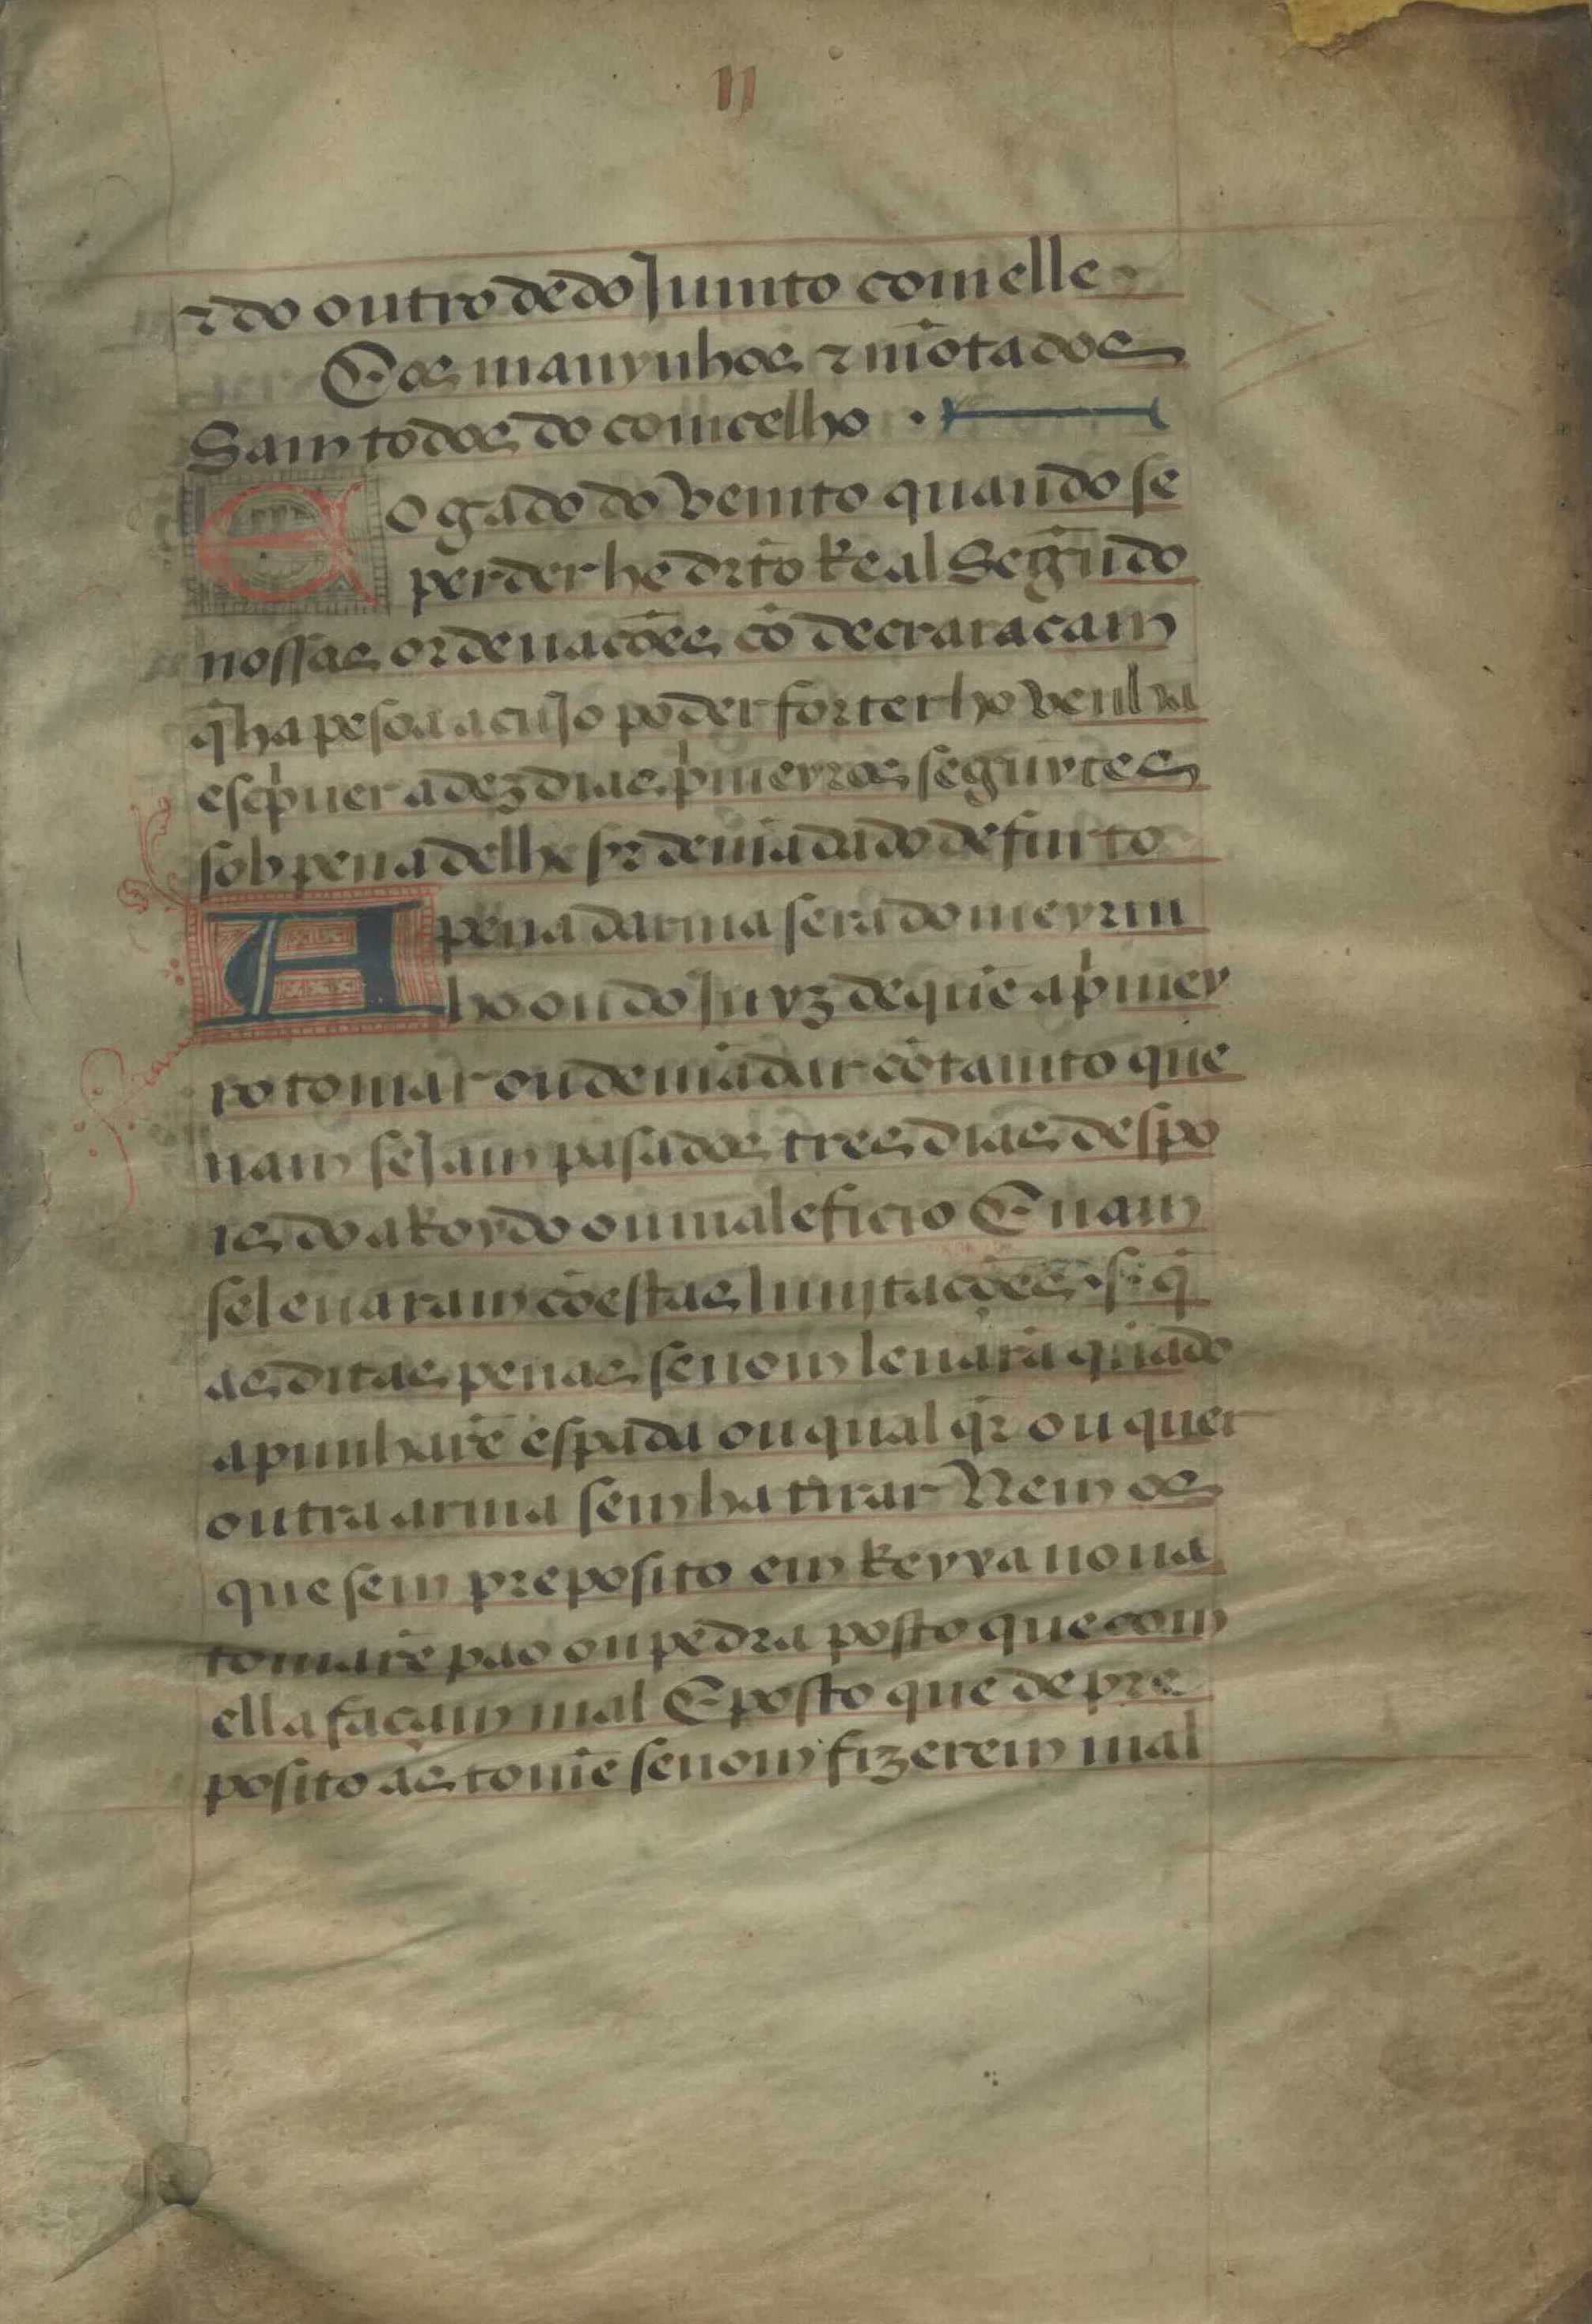 IJ
⁊ do outro dedo Jumto com elle
E os manynhos ⁊ mõtados
Sam todos do comcelho .
E o gado do vemto quando se
perder he dr̃to Real Segũdo
nossas ordenacões cõ decraracam
q̃ ha pesoa a cuJo poder for ter ho venha
escp̃uer a dez dias p̃meyros seguỹtes
sob pena de lhe sr̃ demãdado de furto
A pena darma sera do meyrin
ho ou do Juyz de quẽ a p̃mey
ro tomar ou demãdar cõ tamto que
nam seJam pasados tres dias despo
is do aRoydo ou maleficio E nam
se leuaram cõ estas limjtações .s. q̃
as ditas penas se nom leuarã quãdo
apunharẽ espada ou qual qr̃ ou quer
outra arma sem ha tirar Nem os
que sem preposito em Reyxa noua
tomarẽ pao ou pedra posto que com
ella façam mal E posto que de pre
posito as tomẽ se nom fizerem mal